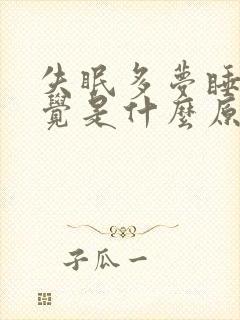 失眠多夢睡
覺是什麼原
子瓜一